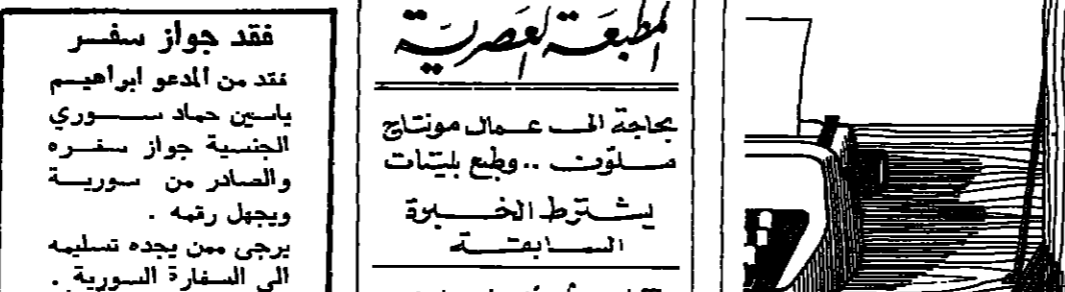 فقد جواز سفر
فقد من المدعو ابراهيم
ياسين حماد سوري
الجنسية جواز سفره
والصادر من سورية
ويجهل رقمه .
يرجى ممن يجده تسليمه
الى السفارة السورية .
المطبعة العصرية
بحاجة الى عمال مونتاج
ملوّن .. وطبع بليتات
يشترط الخبرة
السابقة